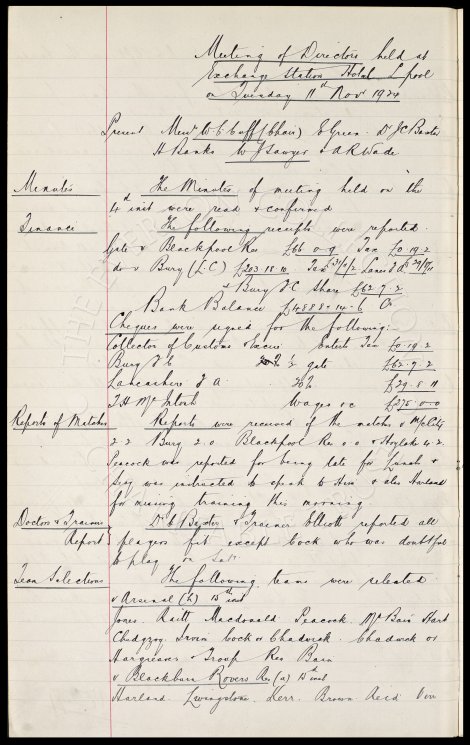 Meeting of Directors held at
Exchange Station Hotel L'pool
on Tuesday 11th Nov 1924
Present Messrs W. C. Cuff (Chair) E Green. Dr J C Baxter
H Banks W J Sawyer & A R Wade
Minutes The Minutes of meeting held on the
4th inst were read & confirmed
Finance The following receipts were reported.
Gate v Blackpool Res £66. 0. 9 Tax £0. 19. 2
do v Bury (L.C) £203. 18. 10. Tax
& Bury F C Share £62. 9. 2
Bank Balance £4888 - 14 - 6 Cr
Cheques were signed for the following:
Collector of Customs & Excise Enterts Tax £0. 19. 2
Bury F C ½ gate £62. 9. 2
Lancashire F A. 20% £29. 8. 11
T. H. McIntosh Wages &c £275. 0. 0
Reports of Matches Reports were received of the matches v M/c City
2. 2 Bury 2. 0 Blackpool Res 0. 0 & Hoylake 4. 2.
Peacock was reported for being late for Lunch &
Secy was instructed to speak to him & also Harland
for missing training this morning.
Doctors & Trainers Report Dr C Baxter & Trainer Elliott reported all
players fit except Cock who was doubtful
to play on Sat.
Team Selections The following teams were selected
v Arsenal (h) 15th inst
Jones. Raitt, Macdonald Peacock McBain Hart
Chedgzoy. Irvin Cock or Chadwick. Chadwick or
Hargreaves & Troup Res Bain
v Blackburn Rovers Res (a) 15th inst
Harland Livingstone. Kerr. Brown Reid